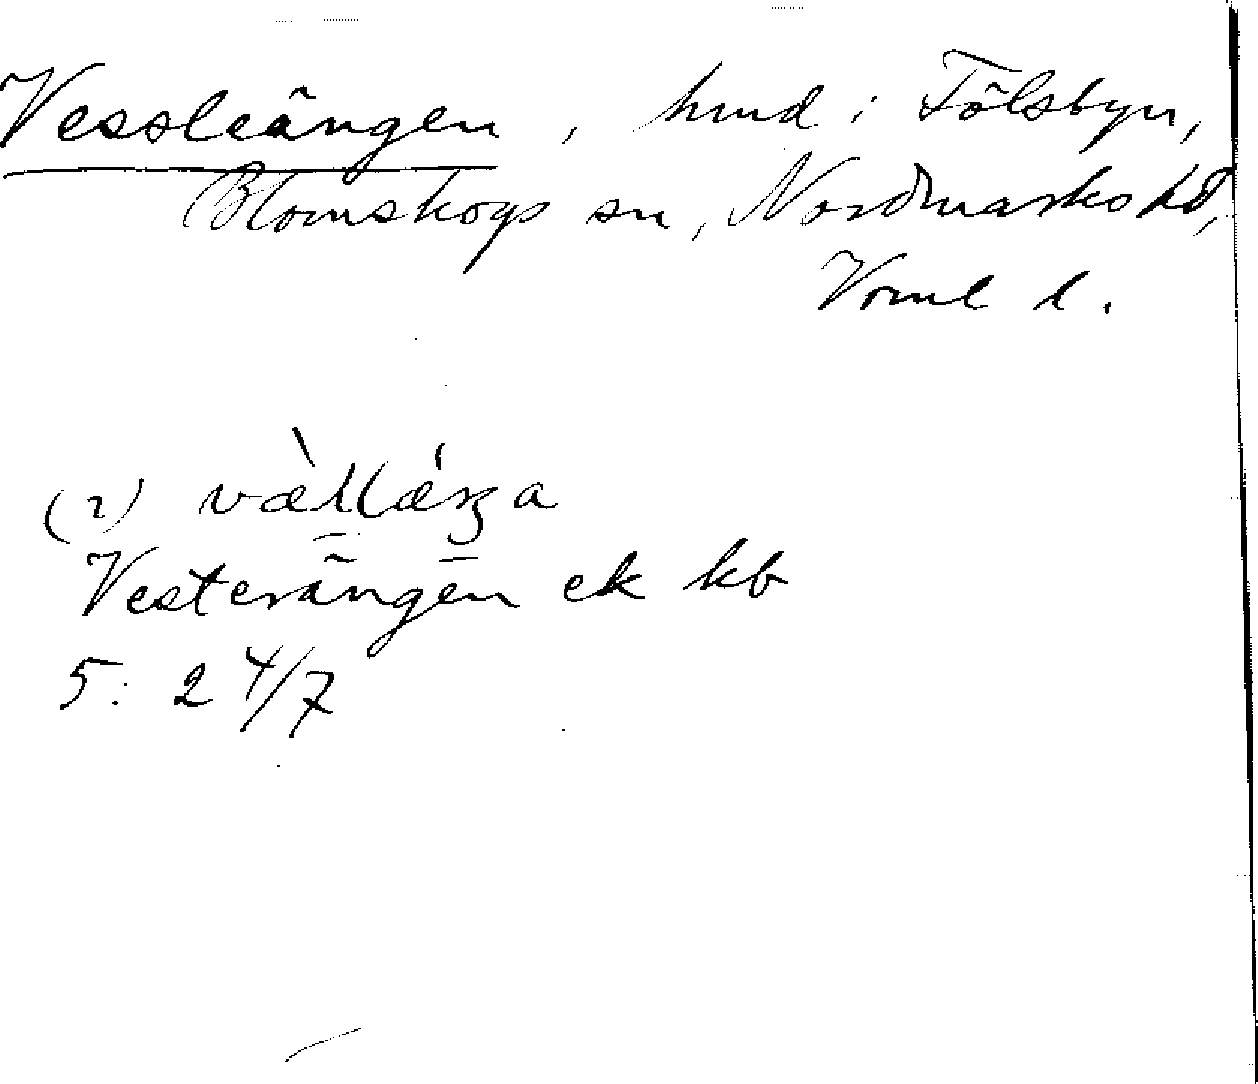 Vessleängen, hmd i Tölsbyn,
Blomskogs sn, Nordmarks hd,
Vrml l.
(i) væ̀llǽŋa
Vesterängen ek kb
5: 2 4/7